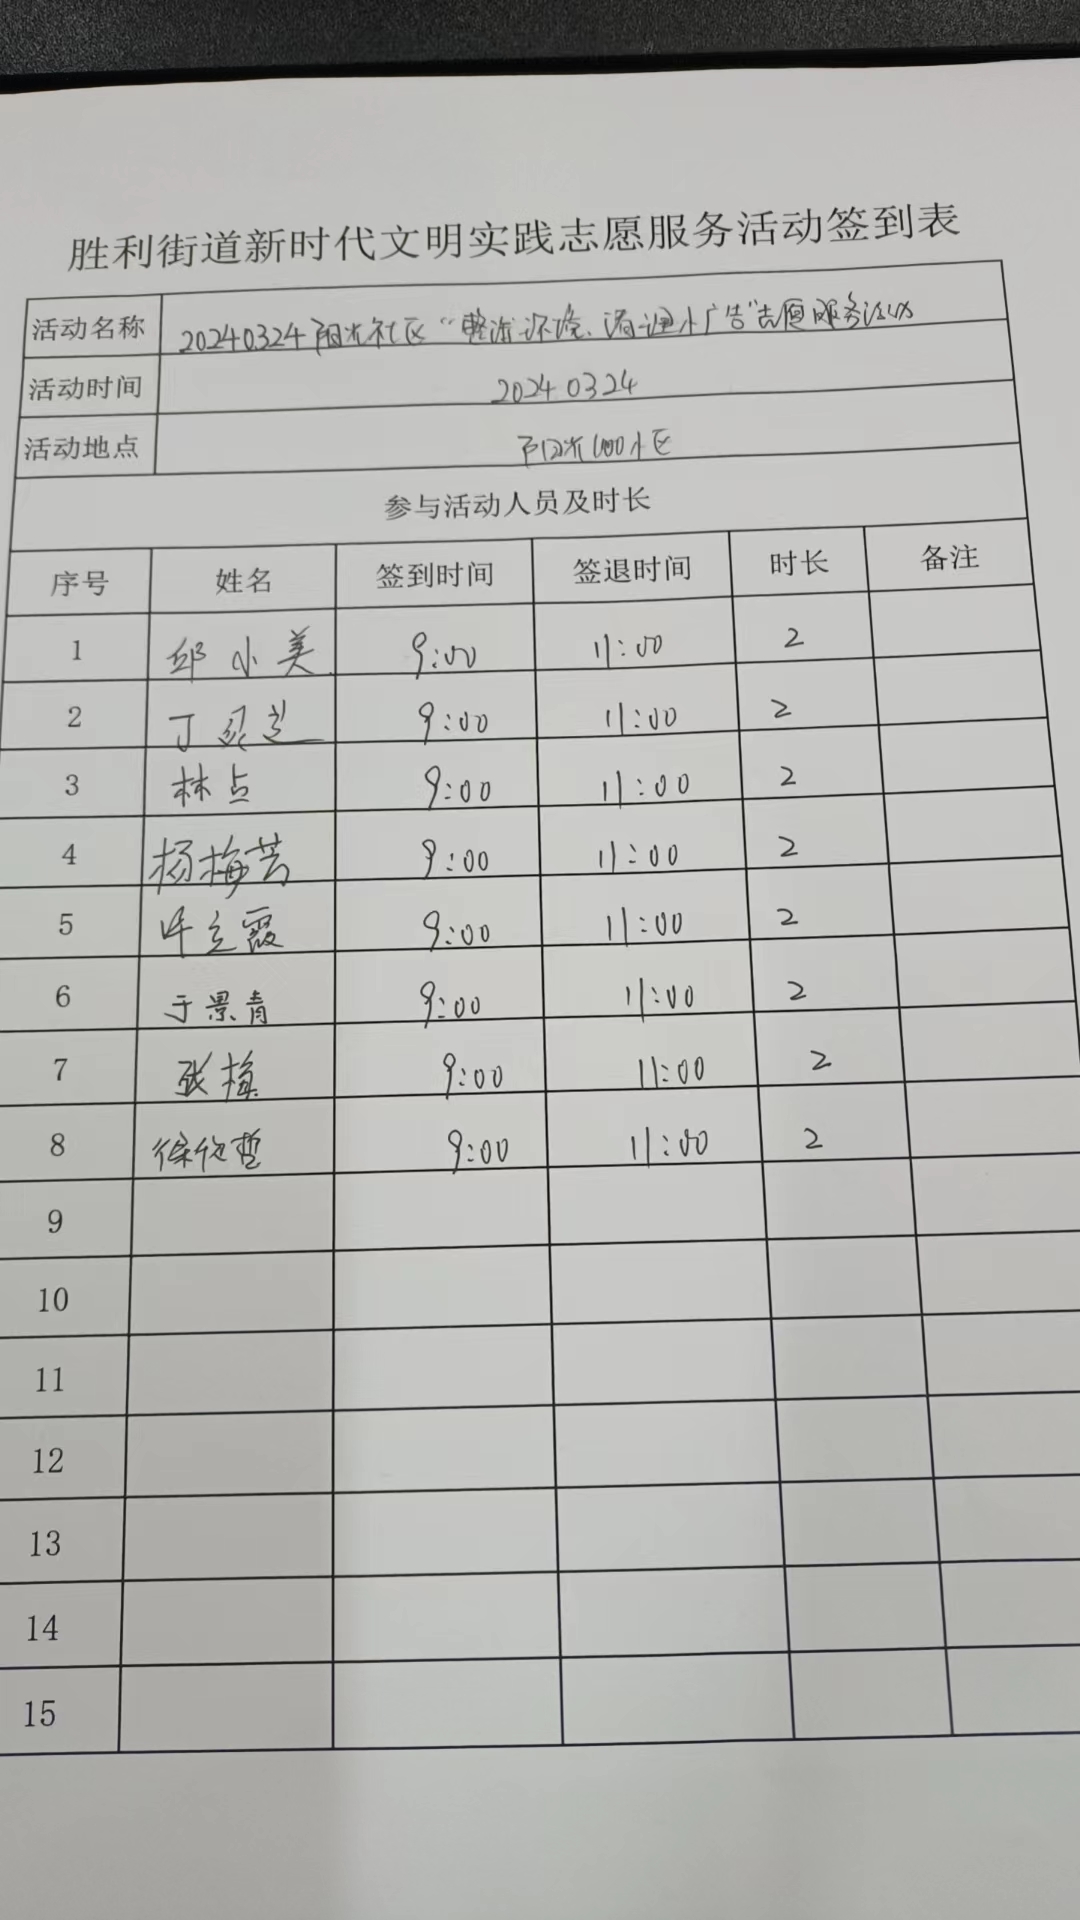 胜利街道新时代文明实践志愿服务活动签到表
活动名称 20240324阳光社区“整治环境、清理小广告”志愿服务活动
活动时间 20240324
活动地点 阳光100小区
参与活动人员及时长
序号 姓名 签到时间 签退时间 时长 备注
1 邱小美 9:00 11:00 2
2 丁 9:00 11:00 2
3 林点 9:00 11:00 2
4 杨梅芳 9:00 11:00 2
5 叶立霞 9:00 11:00 2
6 于景青 9:00 11:00 2
7 张梅 9:00 11:00 2
8 徐 哲 9:00 11:00 2
9
10
11
12
13
14
15